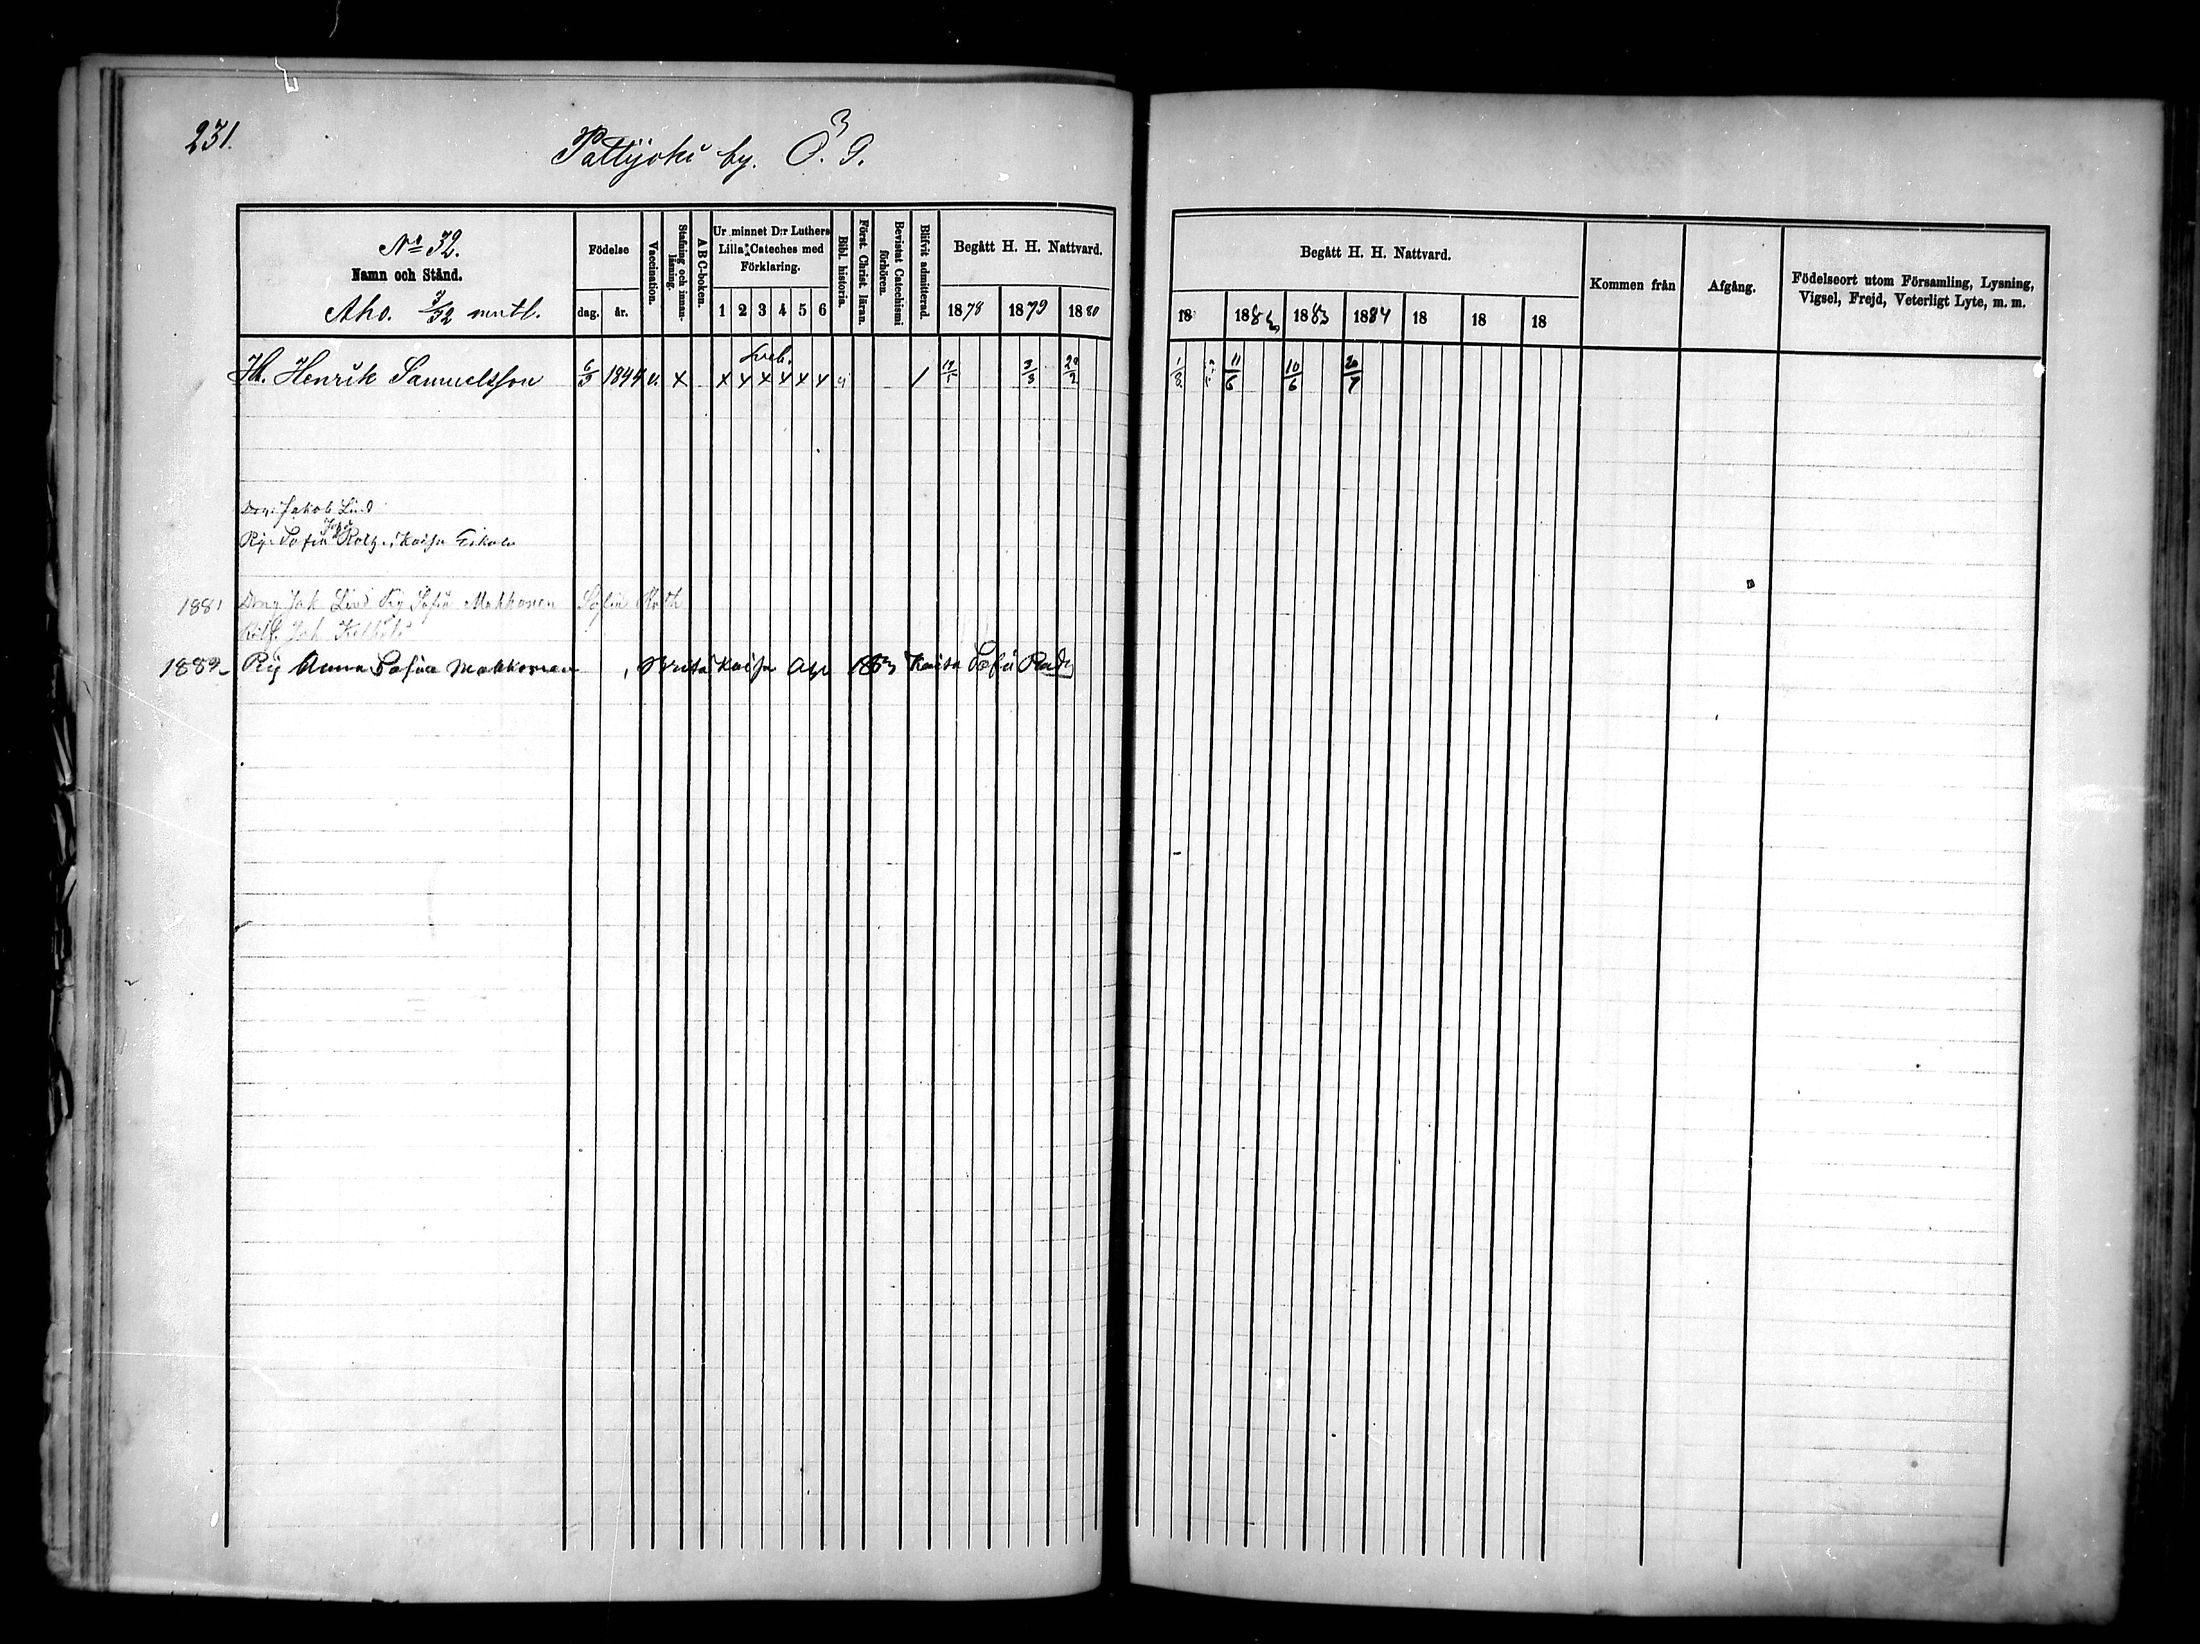 231.
Pattijoki by. Ö. 3
N:o 32.
Namn och Stånd.
Aho. 9/32 mntl.
Födelse
dag. år.
Vaccination.
Stafning och innanläsning.
ABC-boken.
Ur minnet D:r Luthers Lilla Cateches med Förklaring.
1 2 3 4 5 6
Bibl. historia.
Först. Christ. läran.
Bevistat Catechismi förhören.
Blifvit admitterad
Begått H. H. Nattvard.
1878 1879 1880
Begått H. H. Nattvard.
18 1882 1883 1884 18 18 18
Kommen från
Afgång.
Födelseort utom Församling, Lysning, Vigsel, Frejd, Veterligt Lyte, m. m.
Henrik Samuelsson 6/9 1844 v. x x x x x x x / 3/3 29/2 11/6 10/6 20/7
Jakob Lind
Sofia Kaisa
1881 Dreng Jak Lind Pig Sofia Makkonen Sofia
Joh
1882 Pig Anna Sofia Makkonen Brita Kaisa 1883 Kaisa Sofia